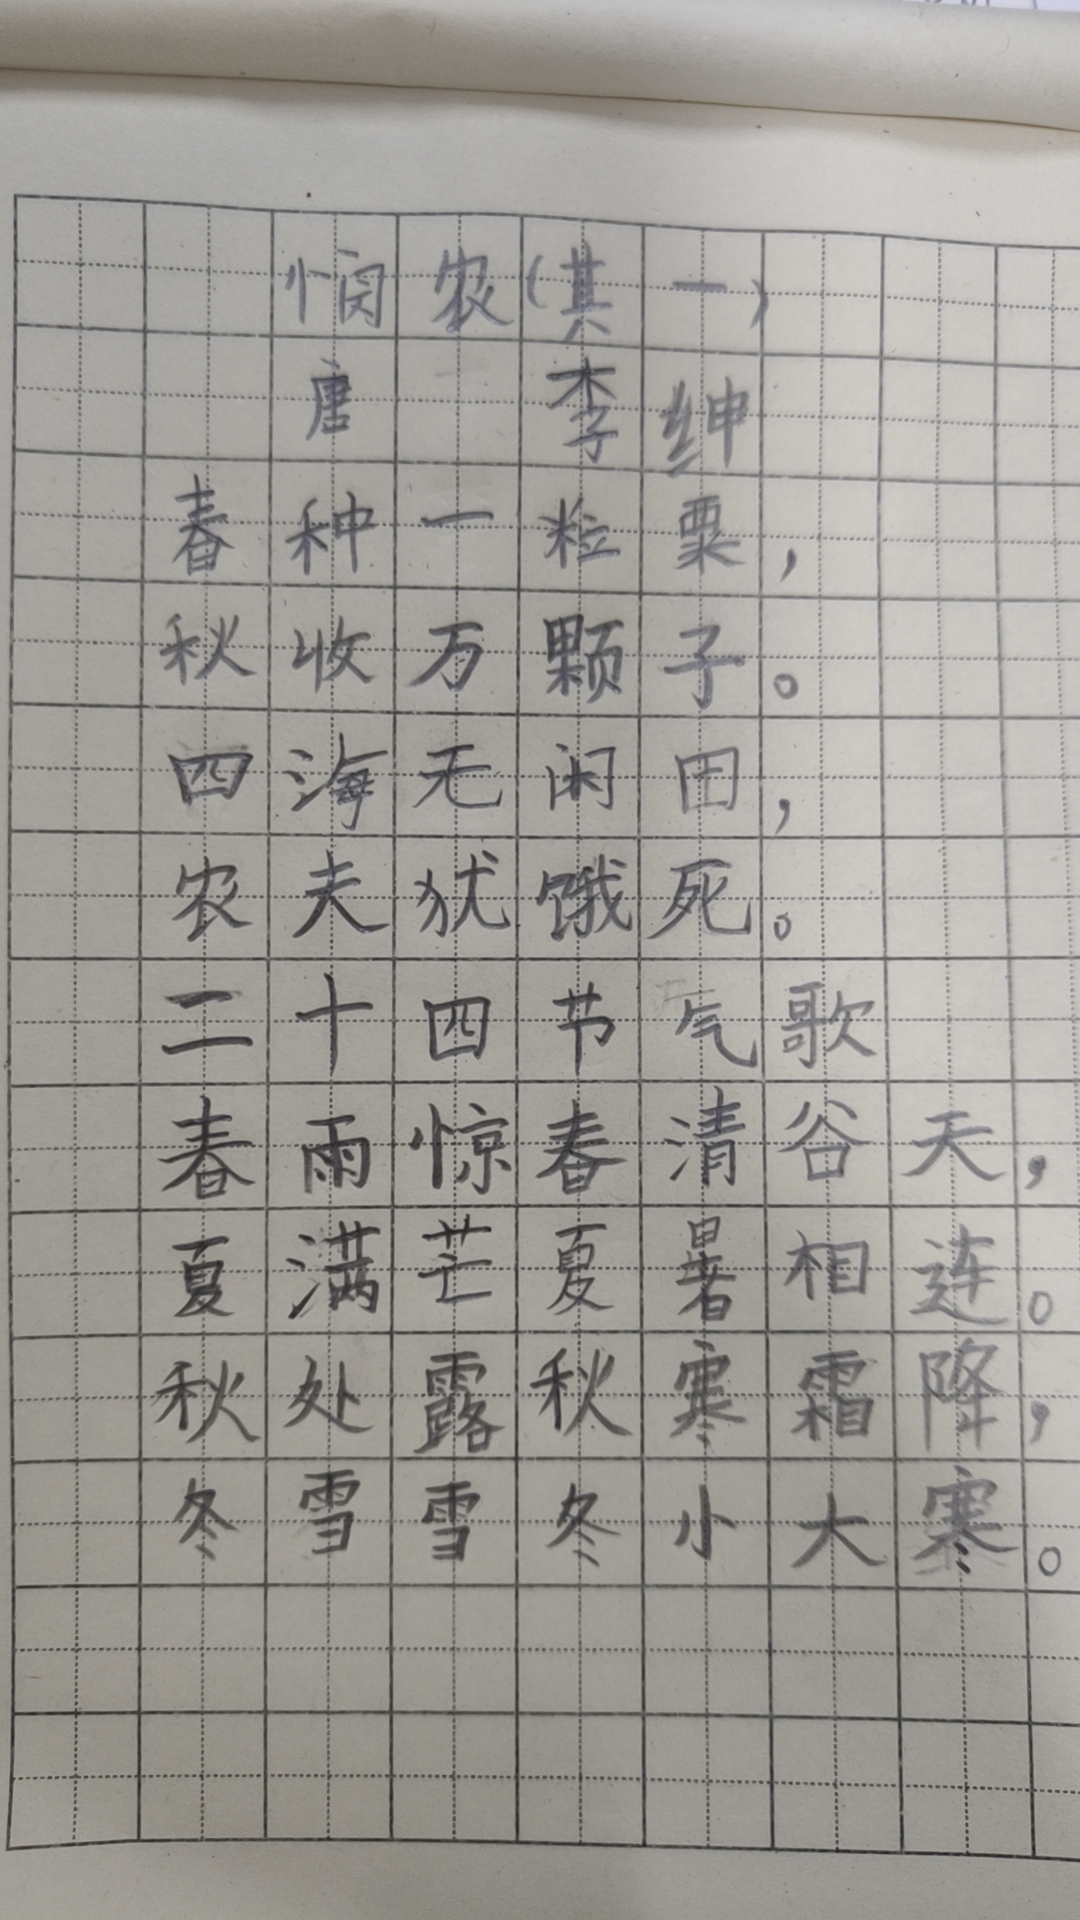 悯农(其一)
唐 李绅
春种一粒粟，
秋收万颗子。
四海无闲田，
农夫犹饿死。
二十四节气歌
春雨惊春清谷天，
夏满芒夏暑相连。
秋处露秋寒霜降，
冬雪雪冬小大寒。